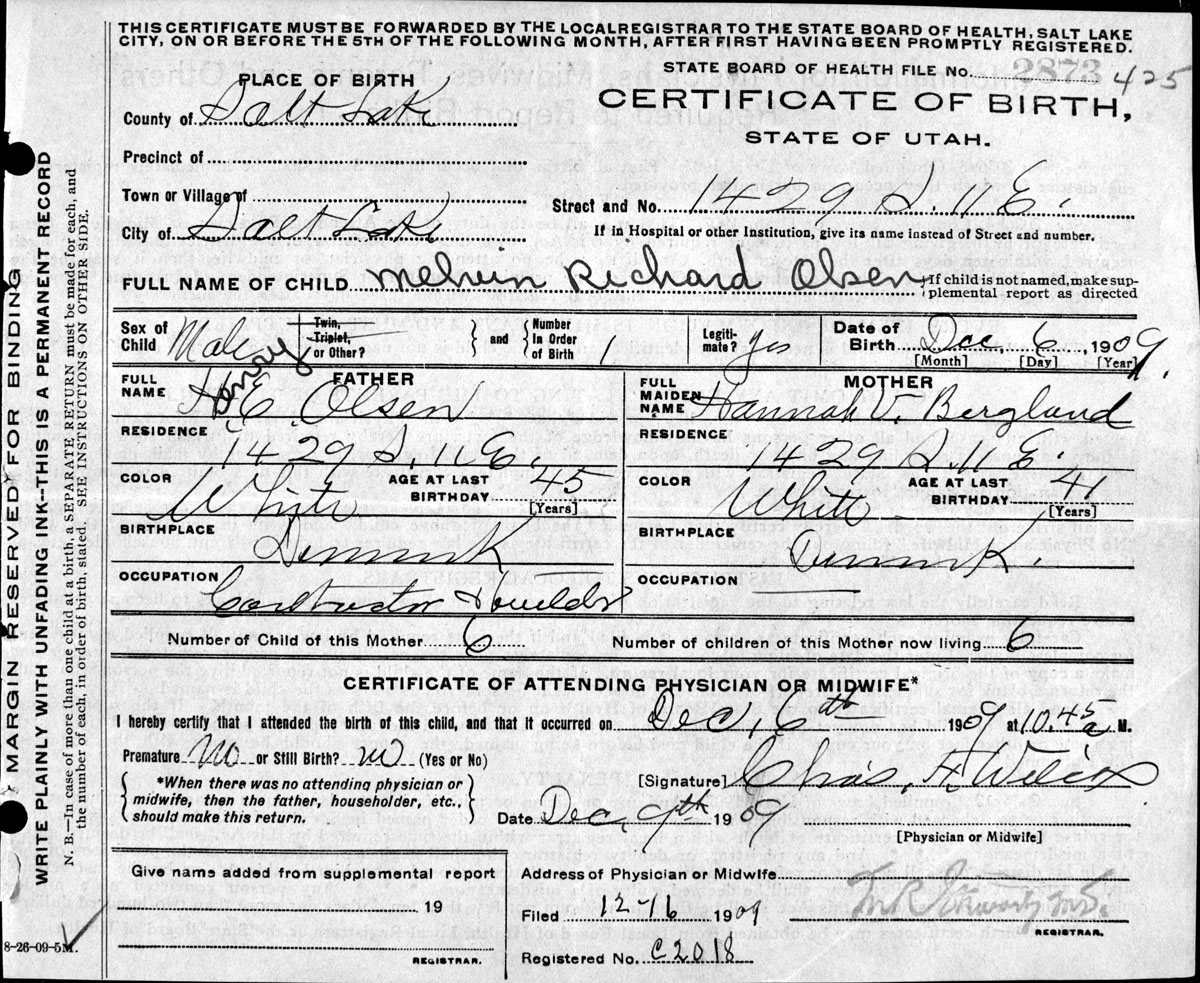 THIS CERTIFICATE MUST BE FORWARDED BY THE LOCAL REGISTRAR TO THE STATE BOARD OF HEALTH, SALT LAKE
CITY, ON OR BEFORE THE 5TH OF THE FOLLOWING MONTH, AFTER FIRST HAVING BEEN PROMPTLY REGISTERED.
STATE BOARD OF HEALTH FILE No. 2873 425
PLACE OF BIRTH
CERTIFICATE OF BIRTH,
STATE OF UTAH.
County of Salt Lake
Precinct of
Town or Village of
Street and No. 1429 S. 11 E.
City of Salt Lake
If in Hospital or other Institution, give its name instead of Street and number.
FULL NAME OF CHILD Melvin Richard Olsen
{If child is not named, make sup-
plemental report as directed
Sex of Child Male
Twin, Triplet, or Other?
and { Number In Order of Birth 1
Legiti-mate? Yes
Date of Birth Dec, 6, 1909.
[Month] [Day] [Year]
FATHER
FULL NAME H. E. Olsen
Henry
RESIDENCE 1429 S. 11 E.
COLOR White
AGE AT LAST BIRTHDAY 45
[Years]
BIRTHPLACE Denmark
OCCUPATION Contractor & builder
MOTHER
FULL MAIDEN NAME Hannah V. Bergland
RESIDENCE 1429 S. 11 E.
COLOR White
AGE AT LAST BIRTHDAY 41
[Years]
BIRTHPLACE Denmark.
OCCUPATION
Number of Child of this Mother 6
Number of children of this Mother now living 6
CERTIFICATE OF ATTENDING PHYSICIAN OR MIDWIFE*
I hereby certify that I attended the birth of this child, and that it occurred on Dec, 6th 1909 at 10.45 a M.
Premature No or Still Birth? No (Yes or No)
{ *When there was no attending physician or
midwife, then the father, householder, etc.,
should make this return. }
[Signature] Chas. F. Wilcox
Date Dec. 9th 1909
[Physician or Midwife]
Give name added from supplemental report
19
REGISTRAR.
Address of Physician or Midwife
Filed 12-16 1909
M.D.
REGISTRAR.
Registered No. C2018
MARGIN RESERVED FOR BINDING
WRITE PLAINLY WITH UNFADING INK—THIS IS A PERMANENT RECORD
N. B.—In case of more than one child at birth, a SEPARATE RETURN must be made for each, and
the number of each, in order of birth, stated. SEE INSTRUCTIONS ON OTHER SIDE.
8-26-09-5M.